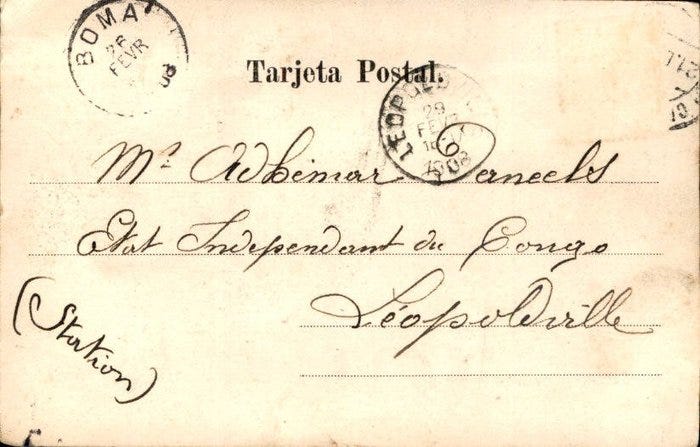 BOMA
26
FEVR
Tarjeta Postal.
LEOPOLD
29
FEV
1908
Mr. Adhémar
Etat Independant du Congo
Léopoldville
(Station)